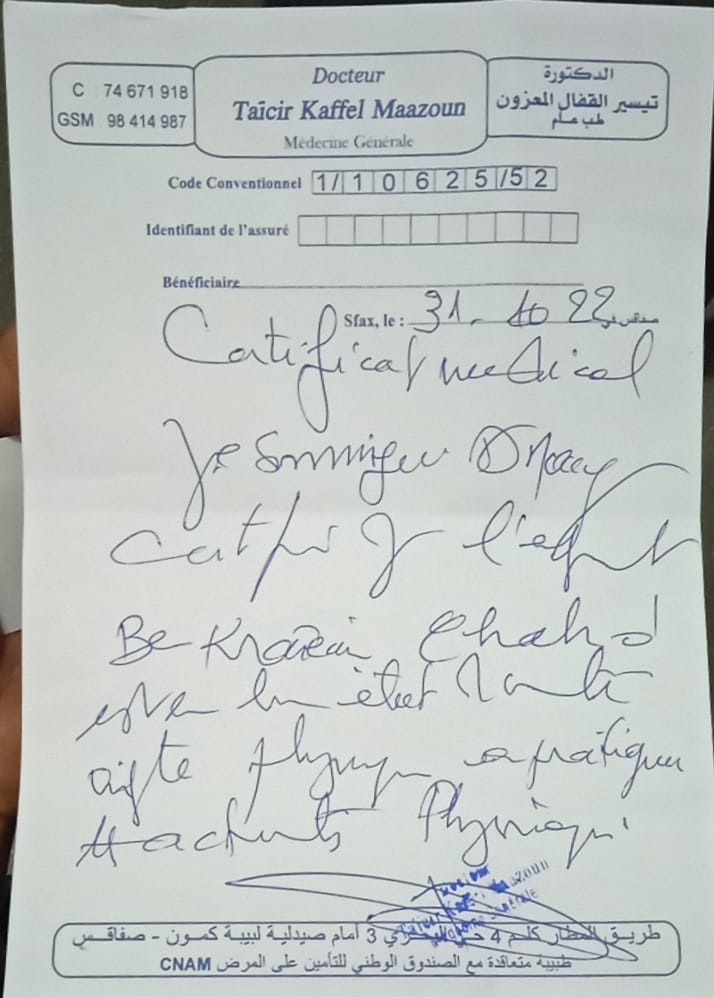 C 74 671 918
GSM 98 414 987
Docteur
Taïcir Kaffel Maazoun
Médecine Générale
الدكتورة
تيسير القفال المعزون
طب عام
Code Conventionnel 1/10625/52
Identifiant de l'assuré
Bénéficiaire
Sfax, le : 31. 10 22 صفاقس في
Certificat medical
Je
certifie l'enfant
Be Chahd
est en bon état
apte physique a pratiquer
tt activité Physique
طريق المطار كلم 4 حي البحري 3 أمام صيدلية لبيبة كمون - صفاقس
طبيبة متعاقدة مع الصندوق الوطني للتأمين على المرض CNAM